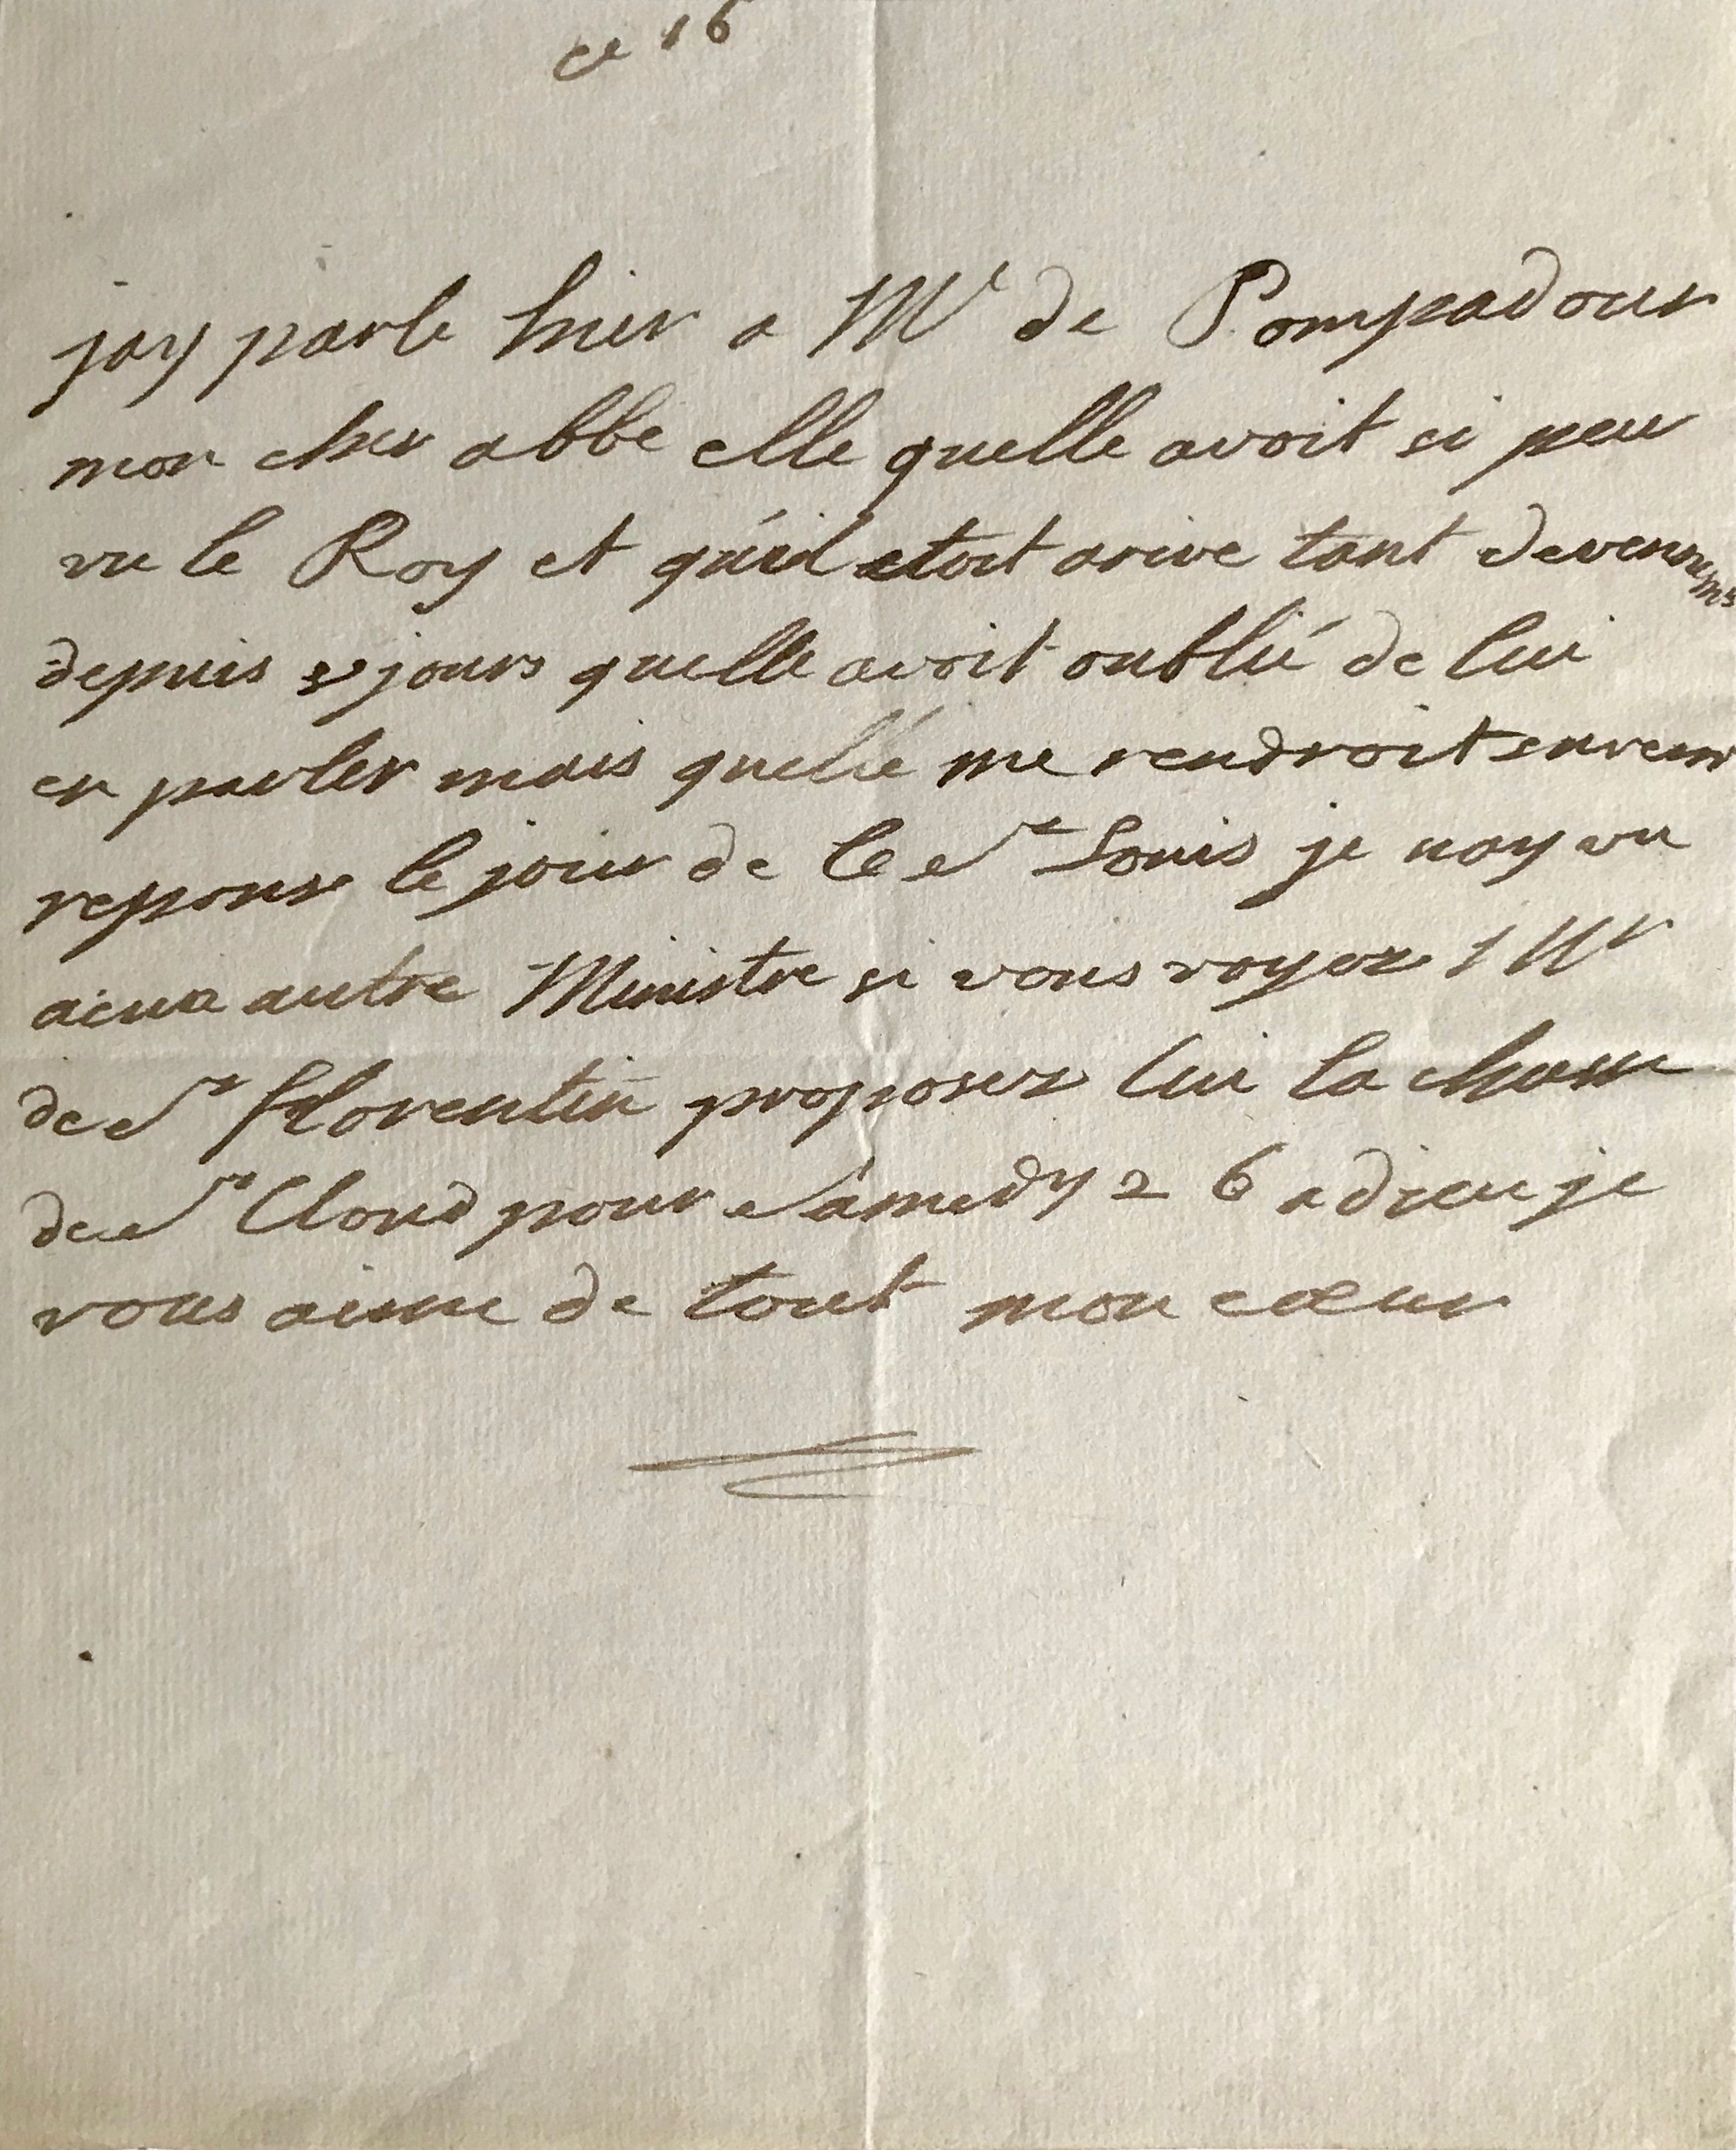 ce 16
jay parle hier a Me de Pompadour
mon cher abbe elle quelle avoit si peu
vu le Roy et qu'il etoit arive tant devenemts
depuis jours quelle avoit oublié de lui
en parler mais quelle me rendroit surem
reponse le jour de la St Louis je nay vu
autre Ministre si vous voyez Mr
de St florentin proposez lui la chasse
de St Cloud pour Samedy 26 adieu je
vous aime de tout mon cœur